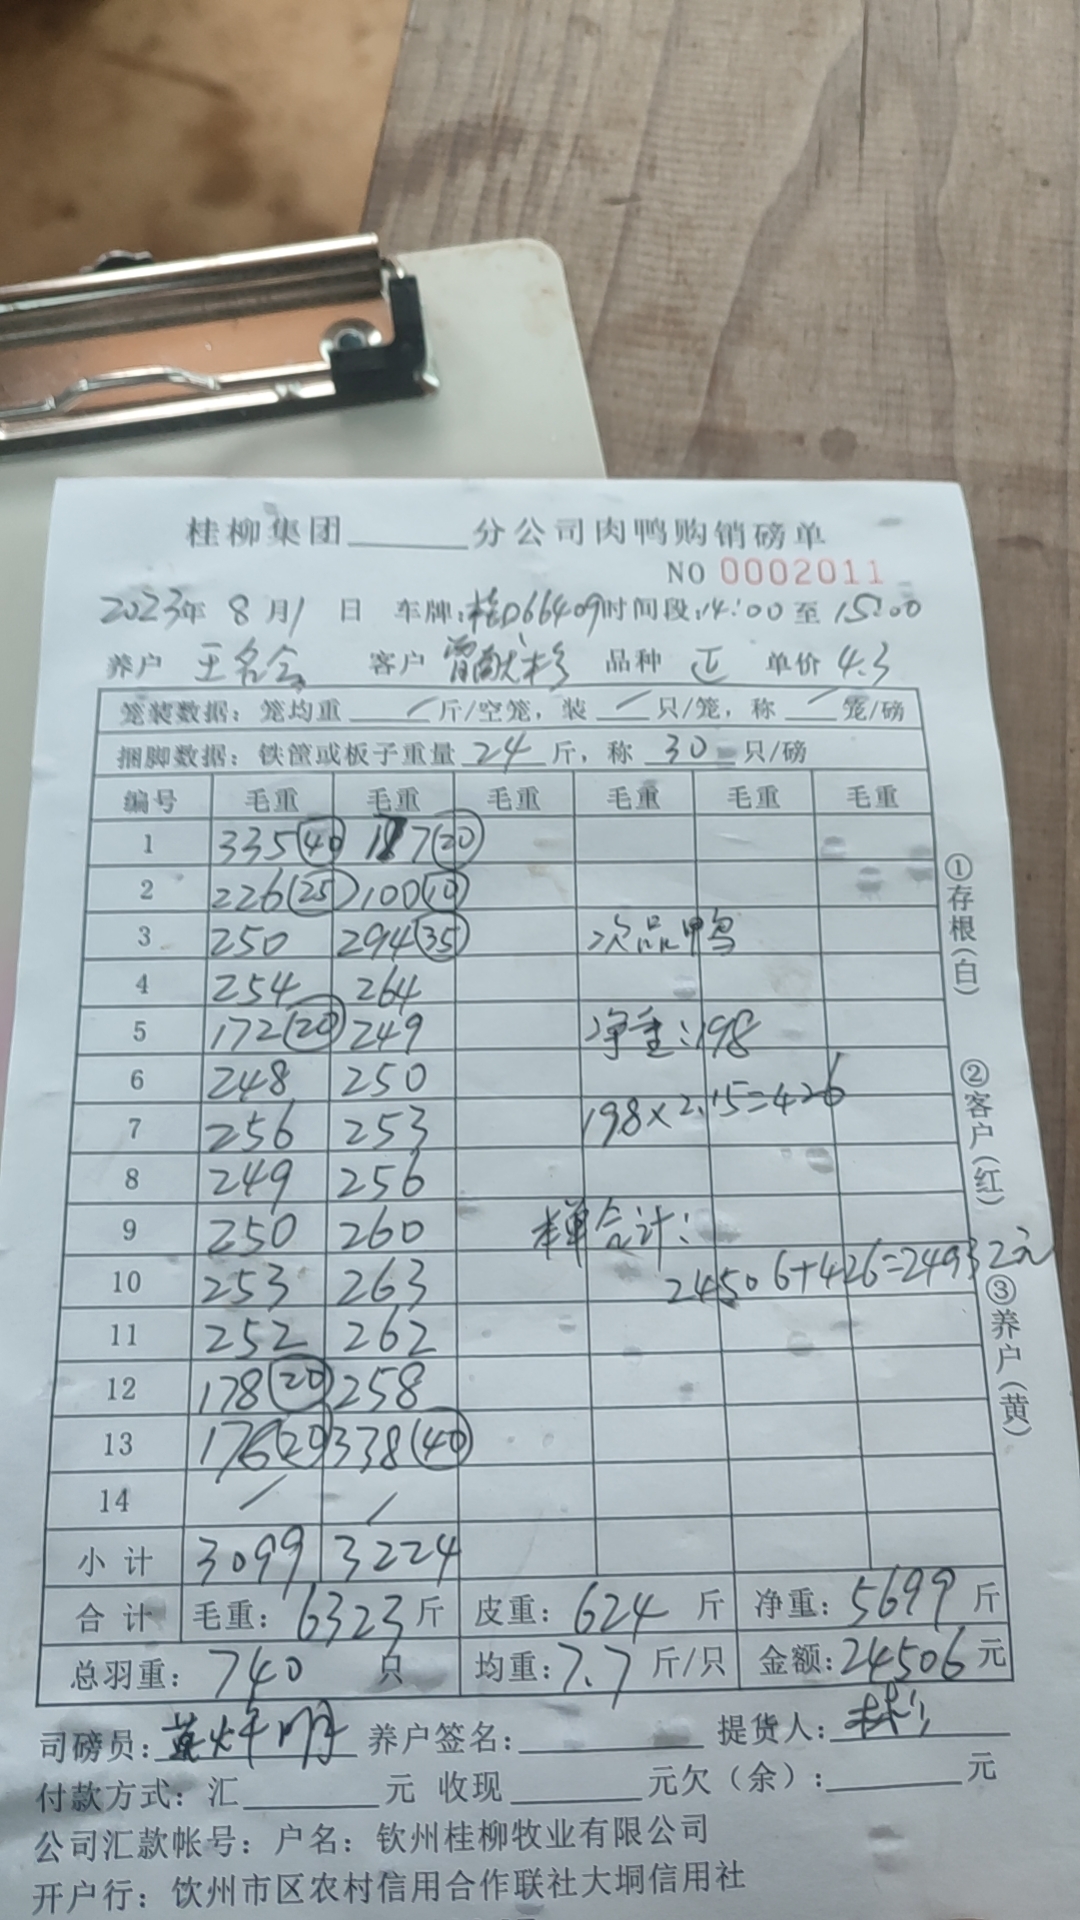 桂柳集团______分公司肉鸭购销磅单
NO 0002011
2023年 8 月1 日 车牌:桂D66409时间段:14:00 至 15:00
养户 王名会 客户 曾献杉 品种 正 单价 4.3
笼装数据: 笼均重 / 斤/空笼, 装 / 只/笼, 称 / 笼/磅
捆脚数据: 铁筐或板子重量 24 斤, 称 30 只/磅
编号 毛重 毛重 毛重 毛重 毛重 毛重
1 335(40) 187(20)
2 226(25) 100(10)
3 250 294(35) 次品鸭
4 254 264
5 172(20) 249 净重:198
6 248 250
7 256 253 198×2.15=426
8 249 256
9 250 260 本单合计:
10 253 263 24506+426=24932元
11 252 262
12 178(20) 258
13 176(20) 338(40)
14 / /
小计 3099 3224
合计 毛重: 6323斤 皮重: 624 斤 净重: 5699 斤
总羽重: 740 只 均重:7.7 斤/只 金额:24506元
司磅员: 养户签名:______ 提货人:
付款方式: 汇______元 收现______元欠(余):______元
公司汇款帐号: 户名: 钦州桂柳牧业有限公司
开户行: 钦州市区农村信用合作联社大垌信用社
①存根(白)
②客户(红)
③养户(黄)